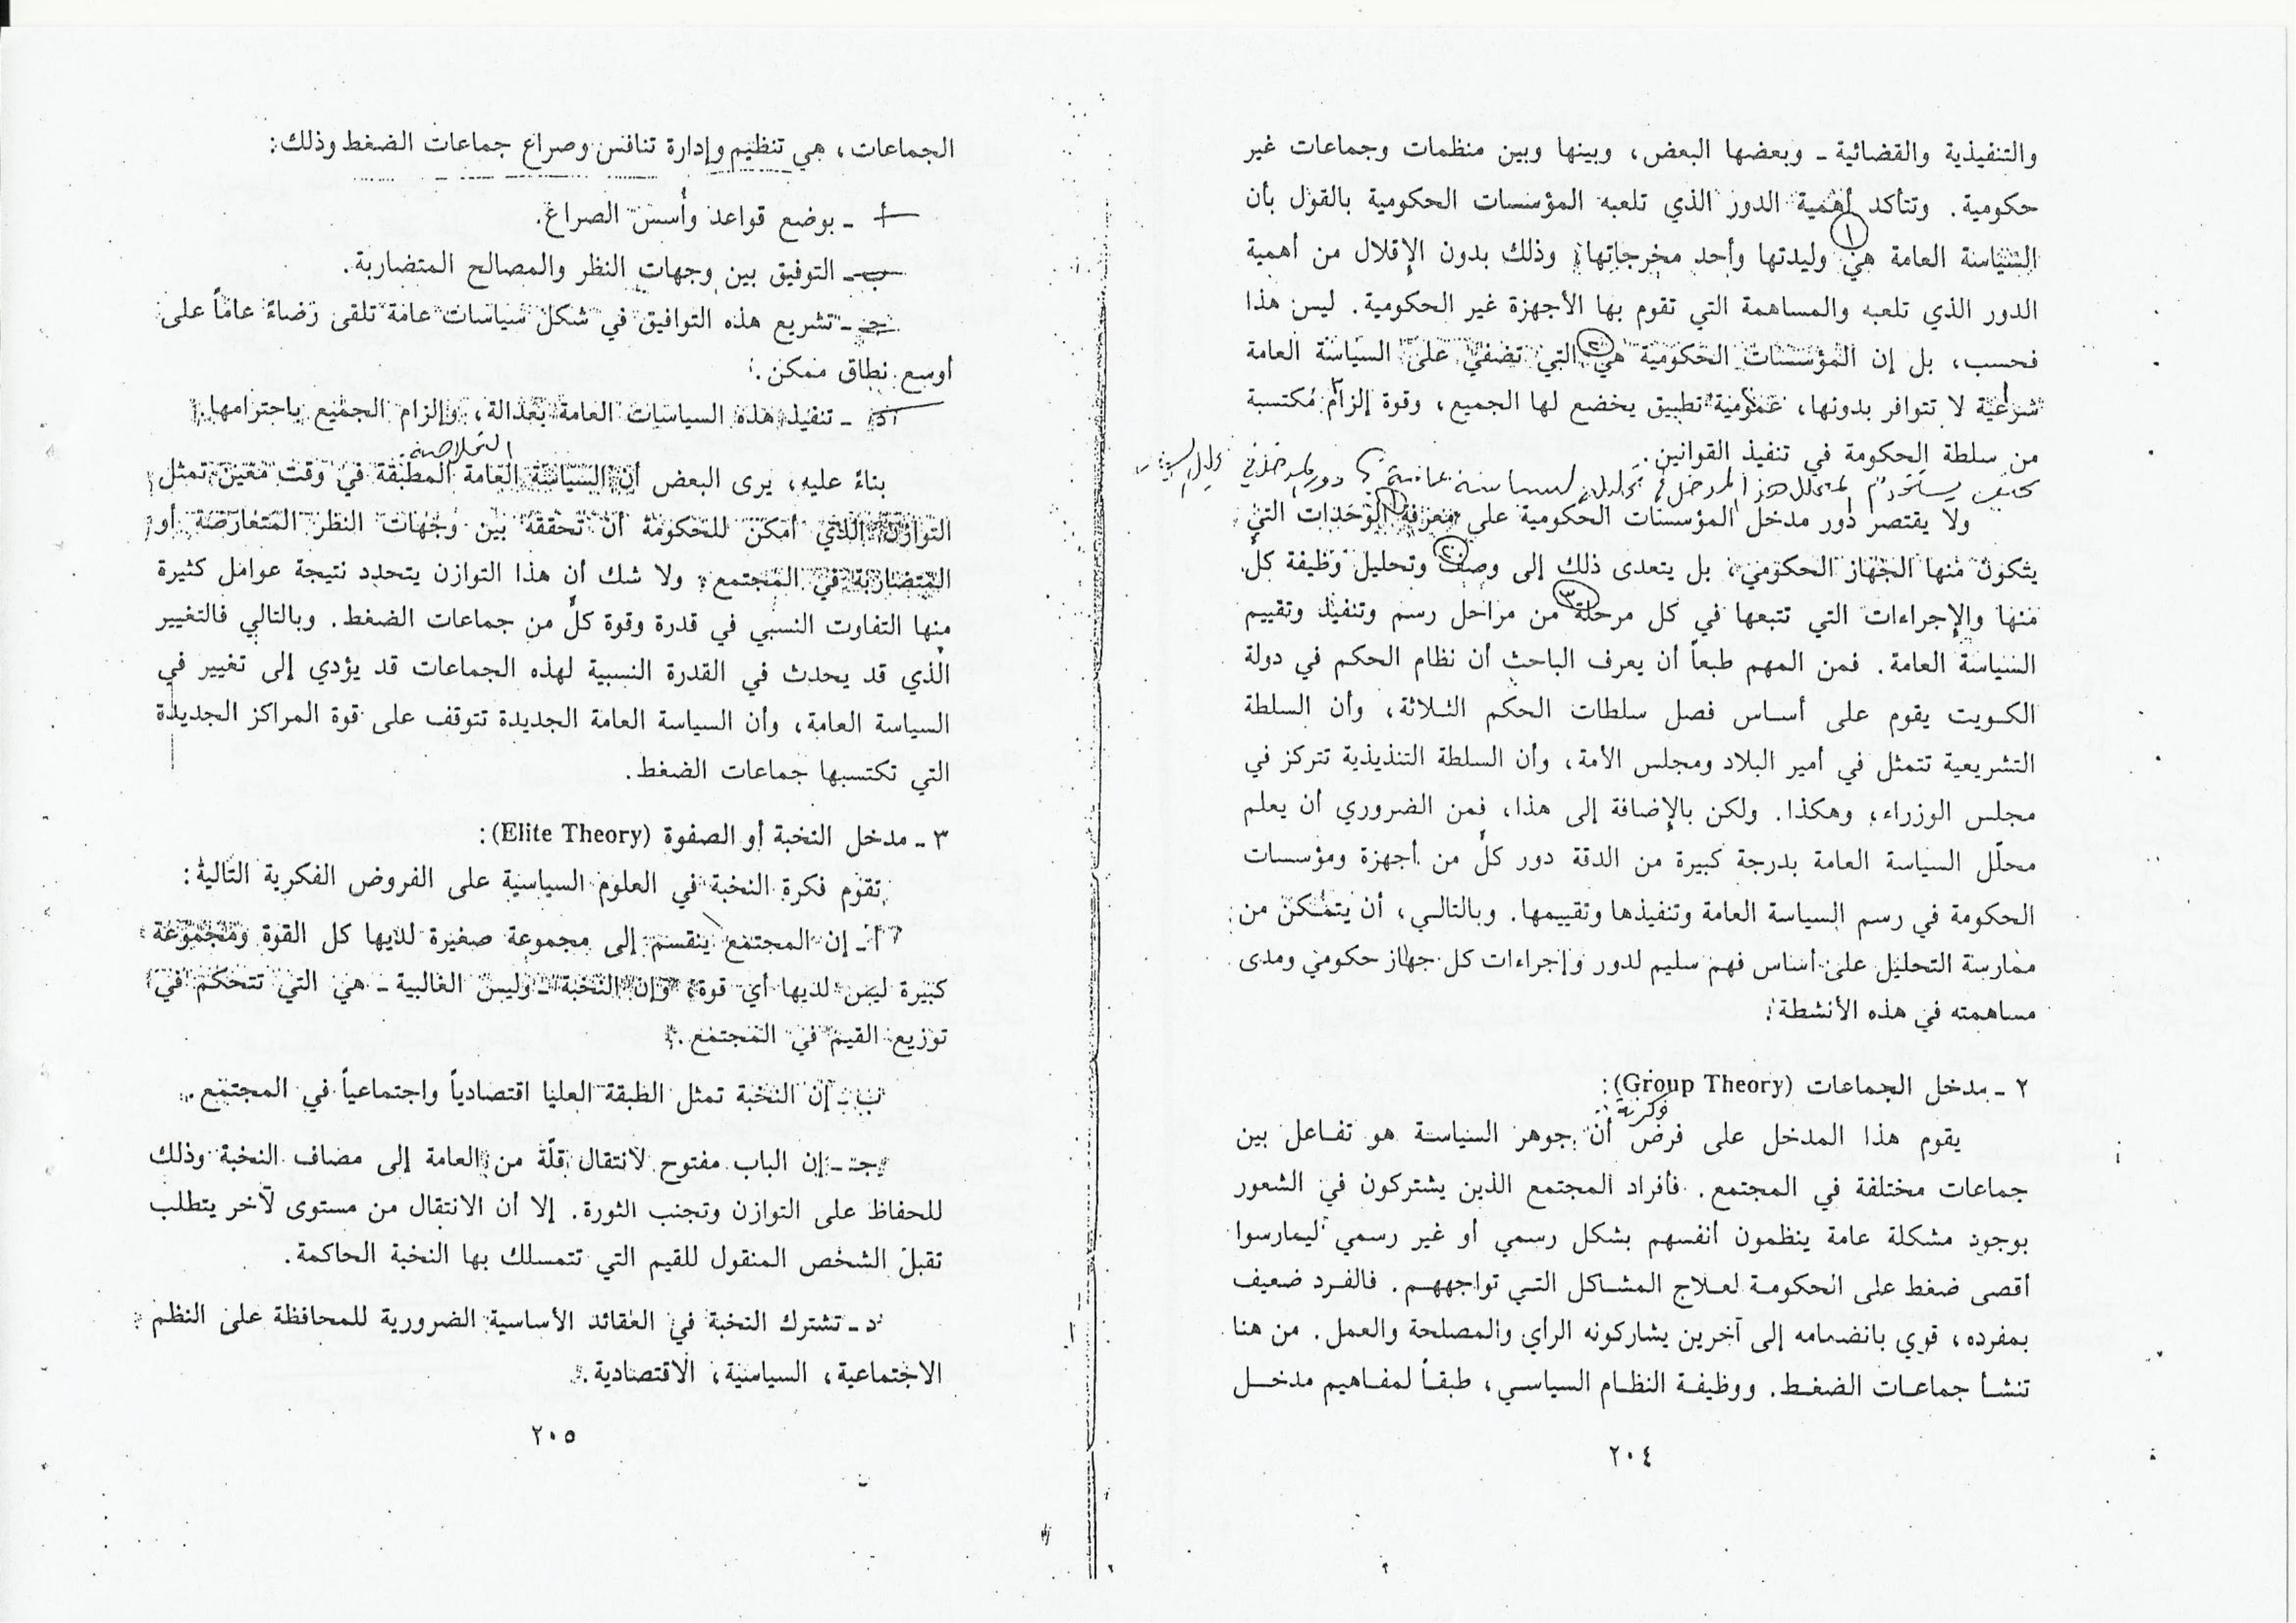 والتنفيذية والقضائية ـ وبعضها البعض، وبينها وبين منظمات وجماعات غير
حكومية. وتتأكد أهمية الدور الذي تلعبه المؤسسات الحكومية بالقول بأن
١
السياسة العامة هي وليدتها وأحد مخرجاتها، وذلك بدون الإقلال من أهمية
الدور الذي تلعبه والمساهمة التي تقوم بها الأجهزة غير الحكومية. ليس هذا
فحسب، بل إن المؤسسات الحكومية هي التي تضفي على السياسة العامة
شرعية لا تتوافر بدونها، عمومية تطبيق يخضع لها الجميع، وقوة إلزام مُكتسبة
من سلطة الحكومة في تنفيذ القوانين.
كيف يستخدم المحلل هذا المدخل في تحليل لسياسة عامة
ولا يقتصر دور مدخل المؤسسات الحكومية على معرفة الوحدات التي
يتكون منها الجهاز الحكومي، بل يتعدى ذلك إلى وصف وتحليل وظيفة كلٍّ
٣
منها والإجراءات التي تتبعها في كل مرحلة من مراحل رسم وتنفيذ وتقييم
السياسة العامة. فمن المهم طبعاً أن يعرف الباحث أن نظام الحكم في دولة
الكويت يقوم على أساس فصل سلطات الحكم الثلاثة، وأن السلطة
التشريعية تتمثل في أمير البلاد ومجلس الأمة، وأن السلطة التنذيذية تتركز في
مجلس الوزراء، وهكذا. ولكن بالإضافة إلى هذا، فمن الضروري أن يعلم
محلّل السياسة العامة بدرجة كبيرة من الدقة دور كلٍّ من أجهزة ومؤسسات
الحكومة في رسم السياسة العامة وتنفيذها وتقييمها. وبالتالي، أن يتمكن من
ممارسة التحليل على أساس فهم سليم لدور وإجراءات كل جهاز حكومي ومدى
مساهمته في هذه الأنشطة.
٢ ـ مدخل الجماعات (Group Theory):
فكرية
يقوم هذا المدخل على فرض أن جوهر السياسة هو تفاعل بين
جماعات مختلفة في المجتمع. فأفراد المجتمع الذين يشتركون في الشعور
بوجود مشكلة عامة ينظمون أنفسهم بشكل رسمي أو غير رسمي ليمارسوا
أقصى ضغط على الحكومة لعلاج المشاكل التي تواجههم. فالفرد ضعيف
بمفرده، قوي بانضمامه إلى آخرين يشاركونه الرأي والمصلحة والعمل. من هنا
تنشأ جماعات الضغط. ووظيفة النظام السياسي، طبقاً لمفاهيم مدخل
٢٠٤
الجماعات، هي تنظيم وإدارة تنافس وصراع جماعات الضغط وذلك:
أ ـ بوضع قواعد وأسس الصراع.
ب ـ التوفيق بين وجهات النظر والمصالح المتضاربة.
جـ ـ تشريع هذه التوافيق في شكل سياسات عامة تلقى رضاءً عاماً على
أوسع نطاق ممكن.
د ـ تنفيذ هذه السياسات العامة بعدالة، وإلزام الجميع باحترامها.
الخلاصة
بناءً عليه، يرى البعض أن السياسة العامة المطبقة في وقت معين تمثل
التوازن الذي أمكن للحكومة أن تحققه بين وجهات النظر المتعارضة أو
المتضاربة في المجتمع. ولا شك أن هذا التوازن يتحدد نتيجة عوامل كثيرة
منها التفاوت النسبي في قدرة وقوة كلٍّ من جماعات الضغط. وبالتالي فالتغيير
الذي قد يحدث في القدرة النسبية لهذه الجماعات قد يؤدي إلى تغيير في
السياسة العامة، وأن السياسة العامة الجديدة تتوقف على قوة المراكز الجديدة
التي تكتسبها جماعات الضغط.
٣ ـ مدخل النخبة أو الصفوة (Elite Theory):
تقوم فكرة النخبة في العلوم السياسية على الفروض الفكرية التالية:
أ ـ إن المجتمع ينقسم إلى مجموعة صغيرة لديها كل القوة ومجموعة
كبيرة ليس لديها أي قوة، وإن النخبة ـ وليس الغالبية ـ هي التي تتحكم في
توزيع القيم في المجتمع.
ب ـ إن النخبة تمثل الطبقة العليا اقتصادياً واجتماعياً في المجتمع.
جـ ـ إن الباب مفتوح لانتقال قلّة من العامة إلى مضاف النخبة وذلك
للحفاظ على التوازن وتجنب الثورة. إلا أن الانتقال من مستوى لآخر يتطلب
تقبل الشخص المنقول للقيم التي تتمسلك بها النخبة الحاكمة.
د ـ تشترك النخبة في العقائد الأساسية الضرورية للمحافظة على النظم
الاجتماعية، السياسية، الاقتصادية.
٢٠٥